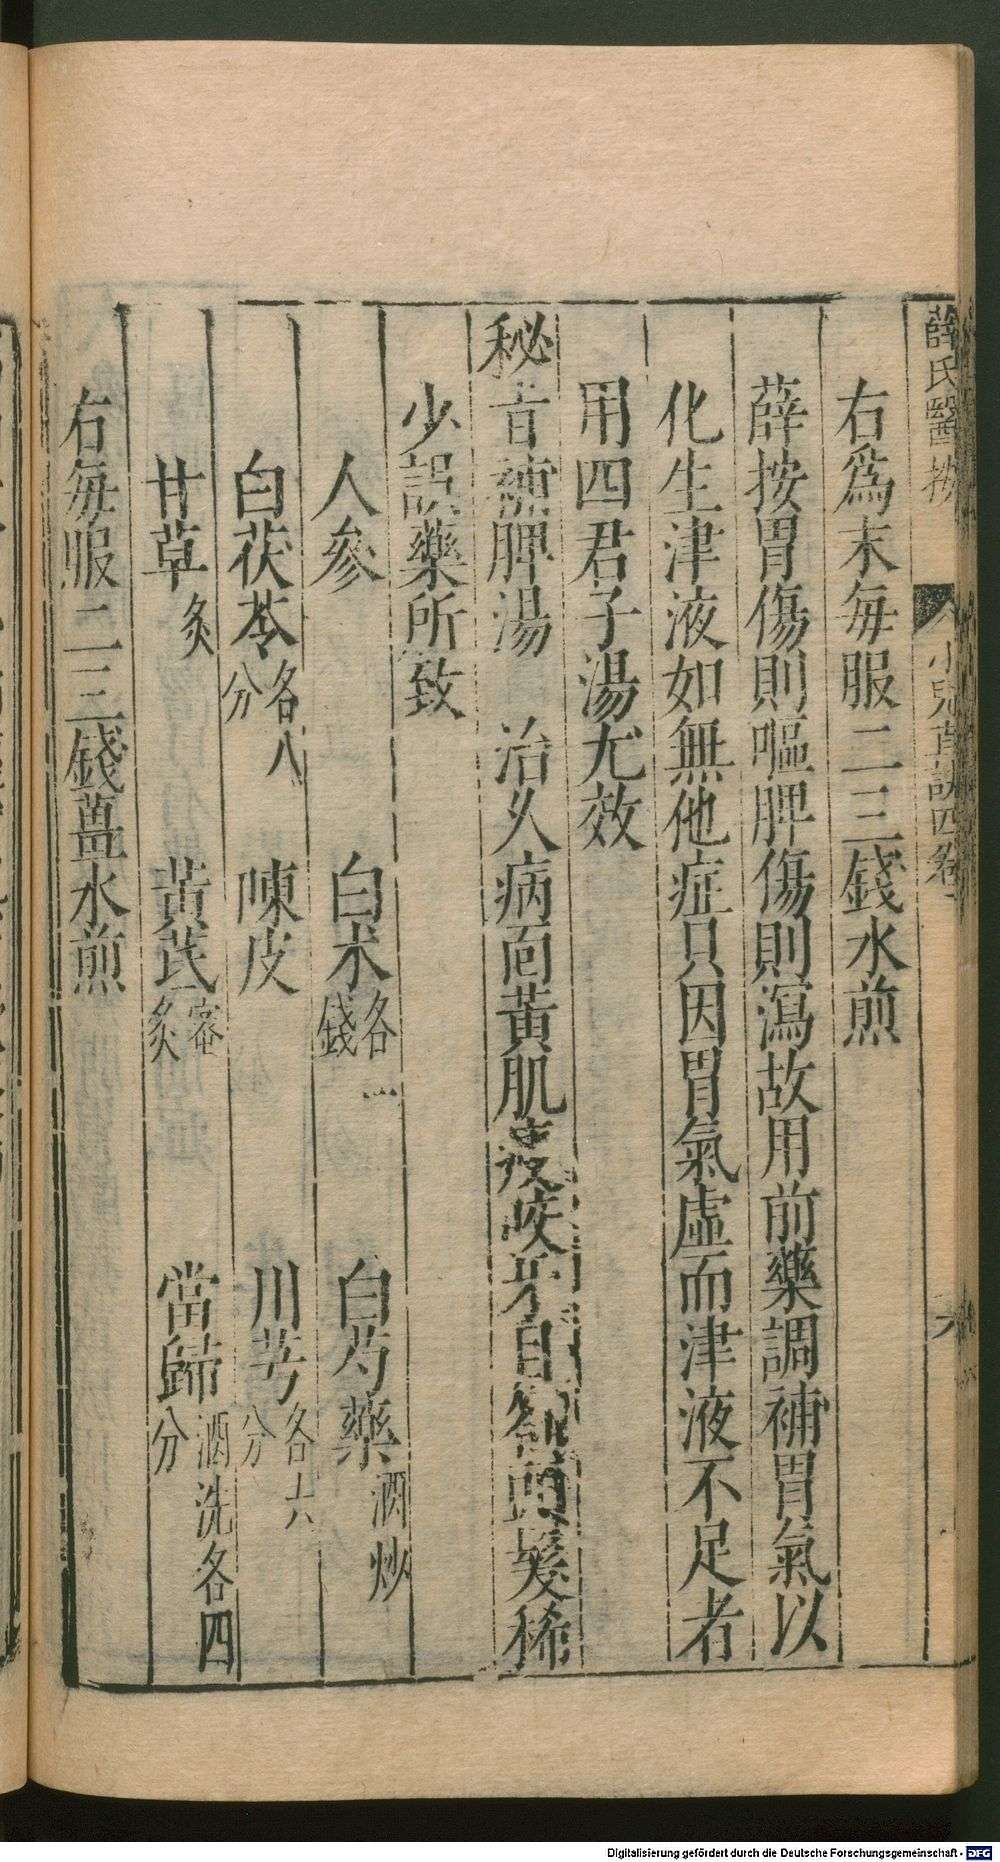 薛氏醫按 小兒直訣四卷 六
右爲末每服二三錢水煎
薛按胃傷則嘔脾傷則瀉故用前藥調補胃氣以
化生津液如無他症只因胃氣虛而津液不足者
用四君子湯尤效
秘旨補脾湯 治久病面黃肌瘦咬牙目劄頭髮稀
少誤藥所致
人參 白术各一錢 白芍藥酒炒
白茯苓各八分 陳皮 川芎各六分
甘草炙 黃芪蜜炙 當歸酒洗各四分
右每服二三錢薑水煎
Digitalisierung gefördert durch die Deutsche Forschungsgemeinschaft - DFG